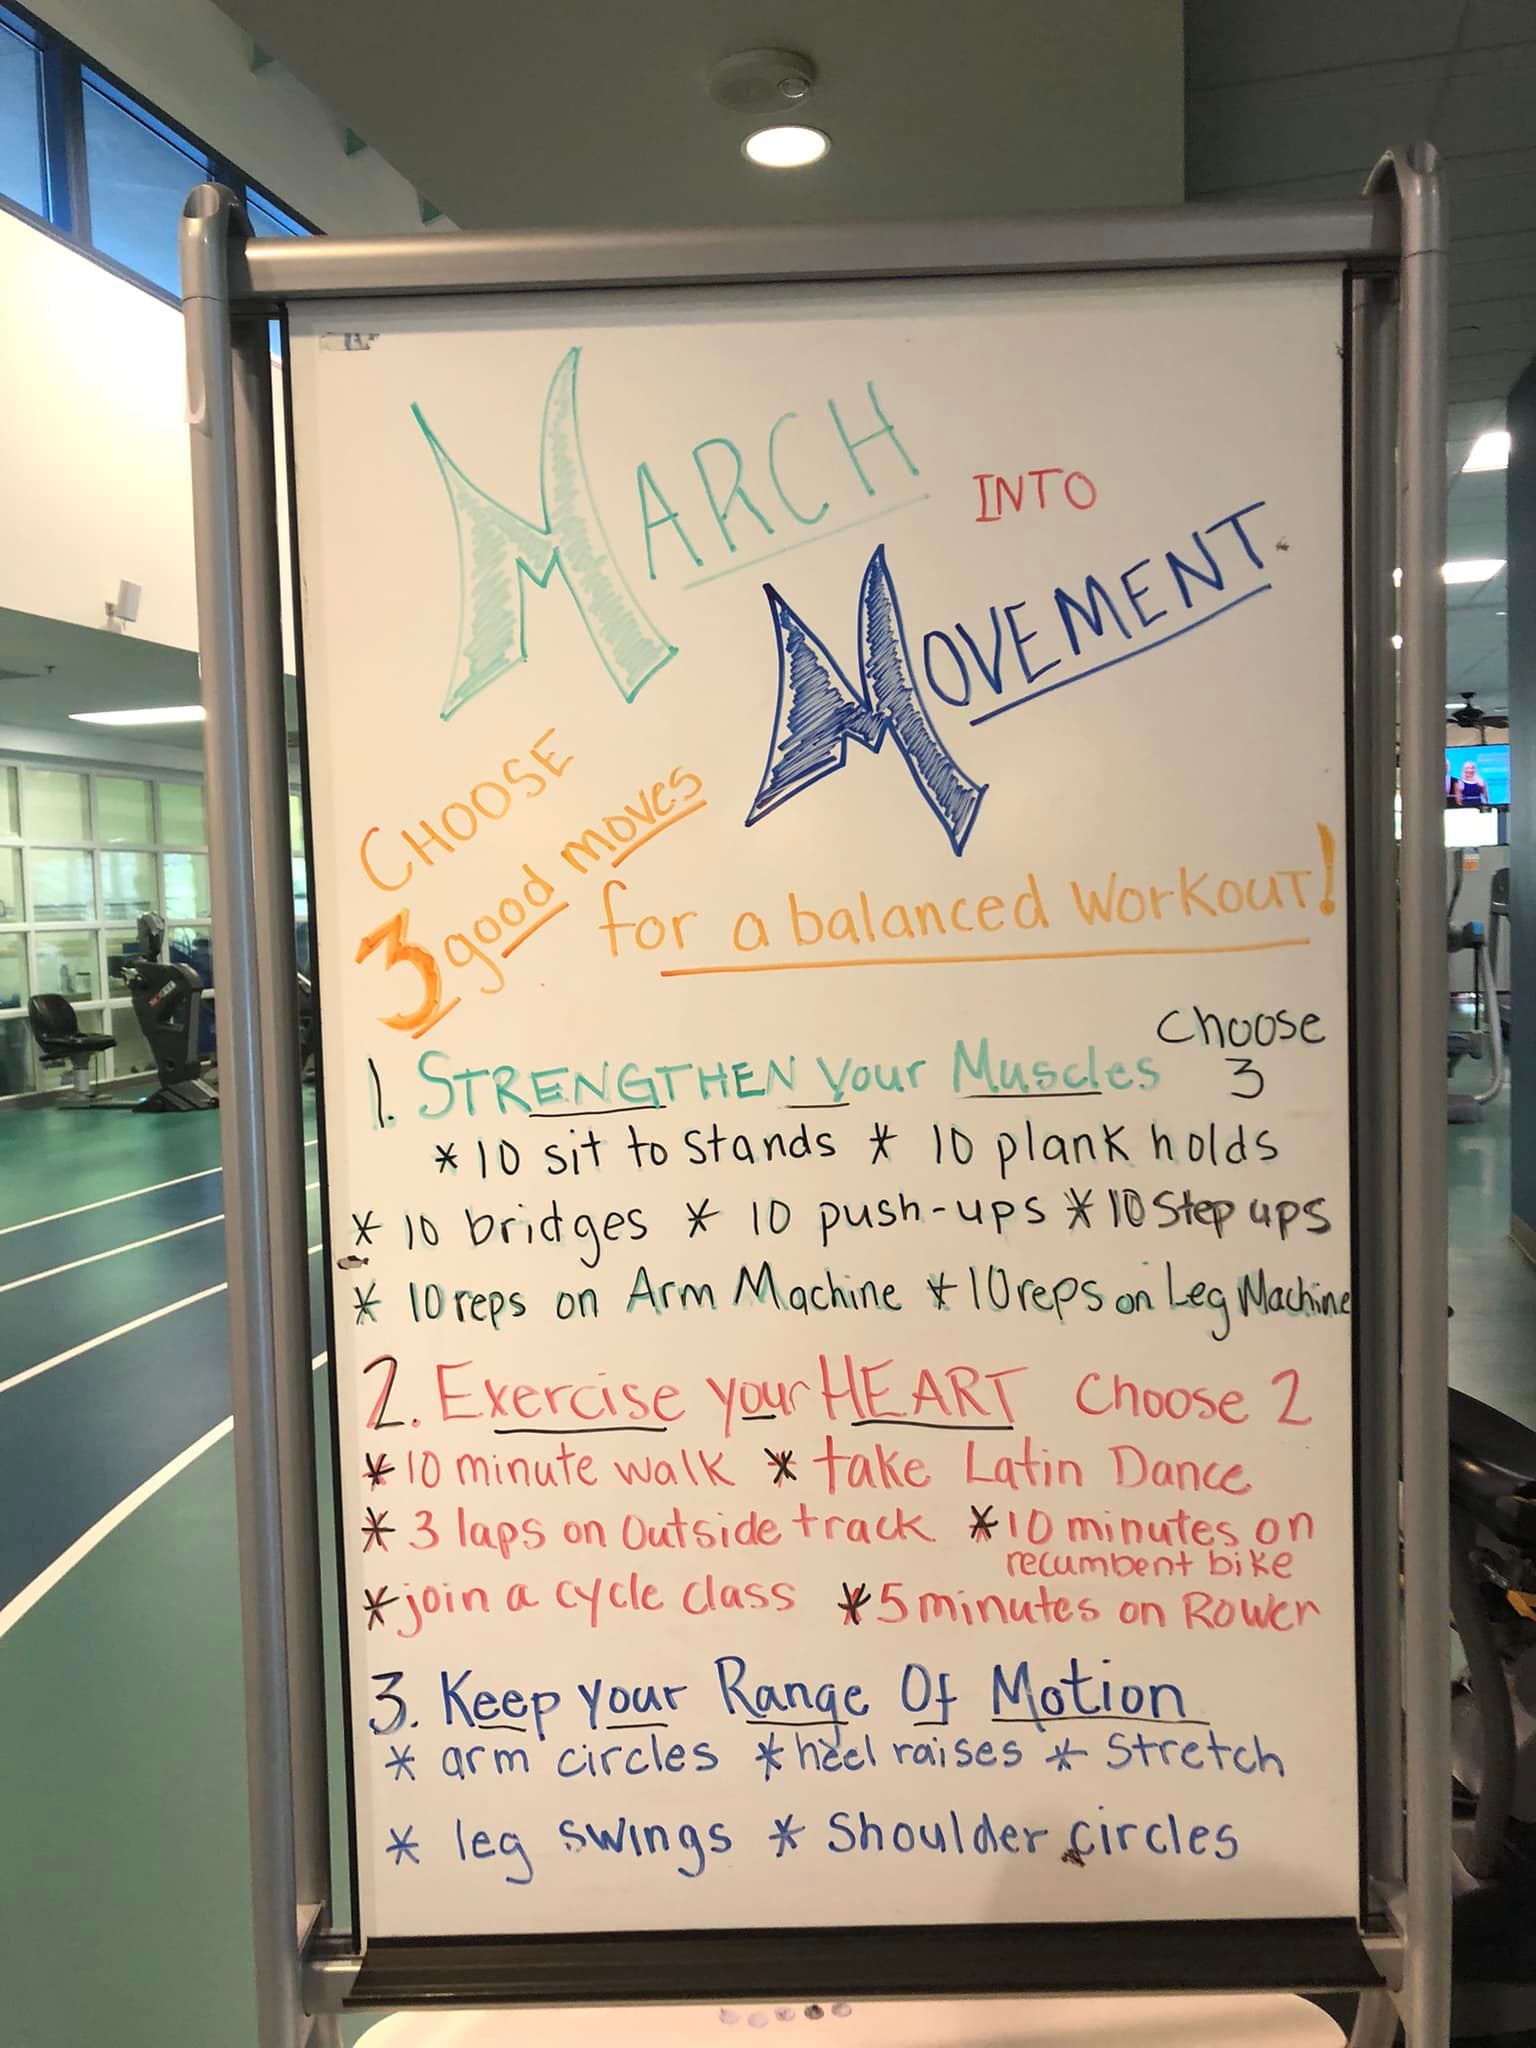 MARCH
INTO
MOVEMENT.
CHOOSE
3 good moves
for a balanced workout!
1. STRENGTHEN your Muscles Choose 3
* 10 sit to stands * 10 plank holds
* 10 bridges * 10 push-ups * 10 Step ups
* 10 reps on Arm Machine * 10 reps on Leg Machine
2. Exercise your HEART Choose 2
* 10 minute walk * take Latin Dance
* 3 laps on outside track * 10 minutes on
recumbent bike
* join a cycle class * 5 minutes on Rower
3. Keep your Range Of Motion
* arm circles * heel raises * Stretch
* leg swings * Shoulder circles